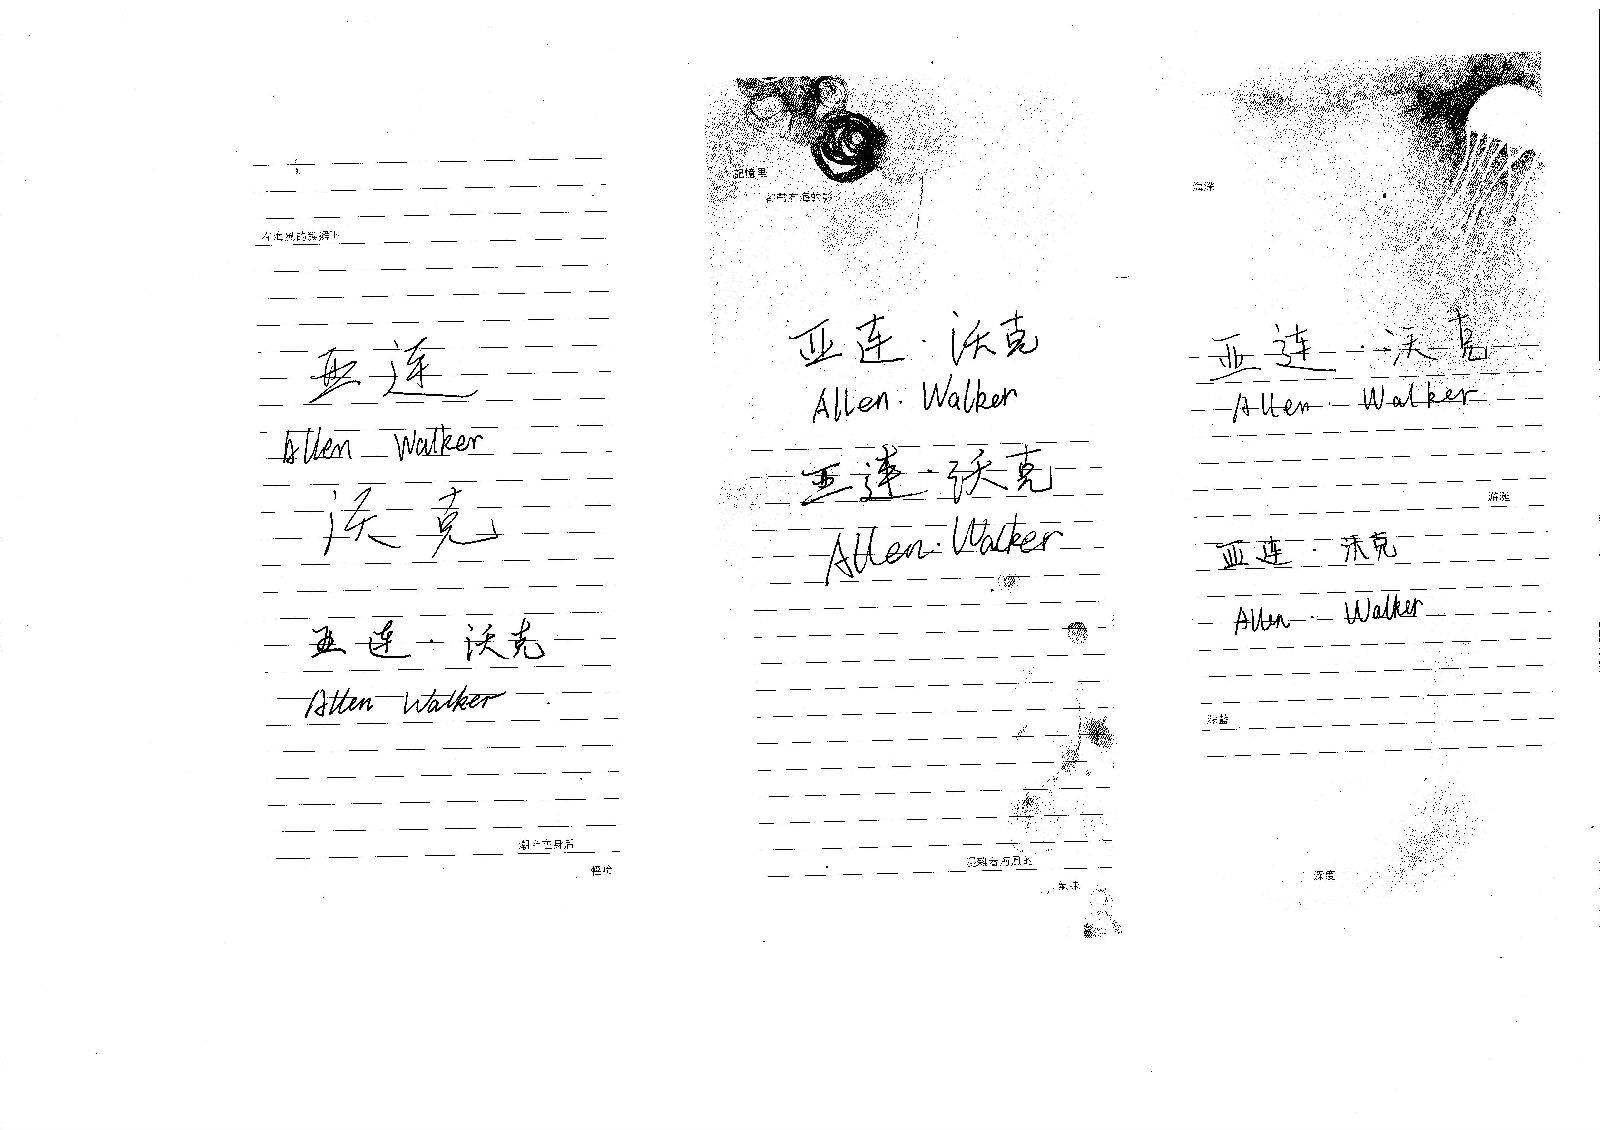 亚连
Allen Walker
沃克
亚连·沃克
Allen Walker
潮汐在身后
记憶里
亚连·沃克
Allen·Walker
亚连·沃克
Allen·Walker
海深
亚连·沃克
Allen·Walker
游涎
亚连·沃克
Allen·Walker
深蓝
深度